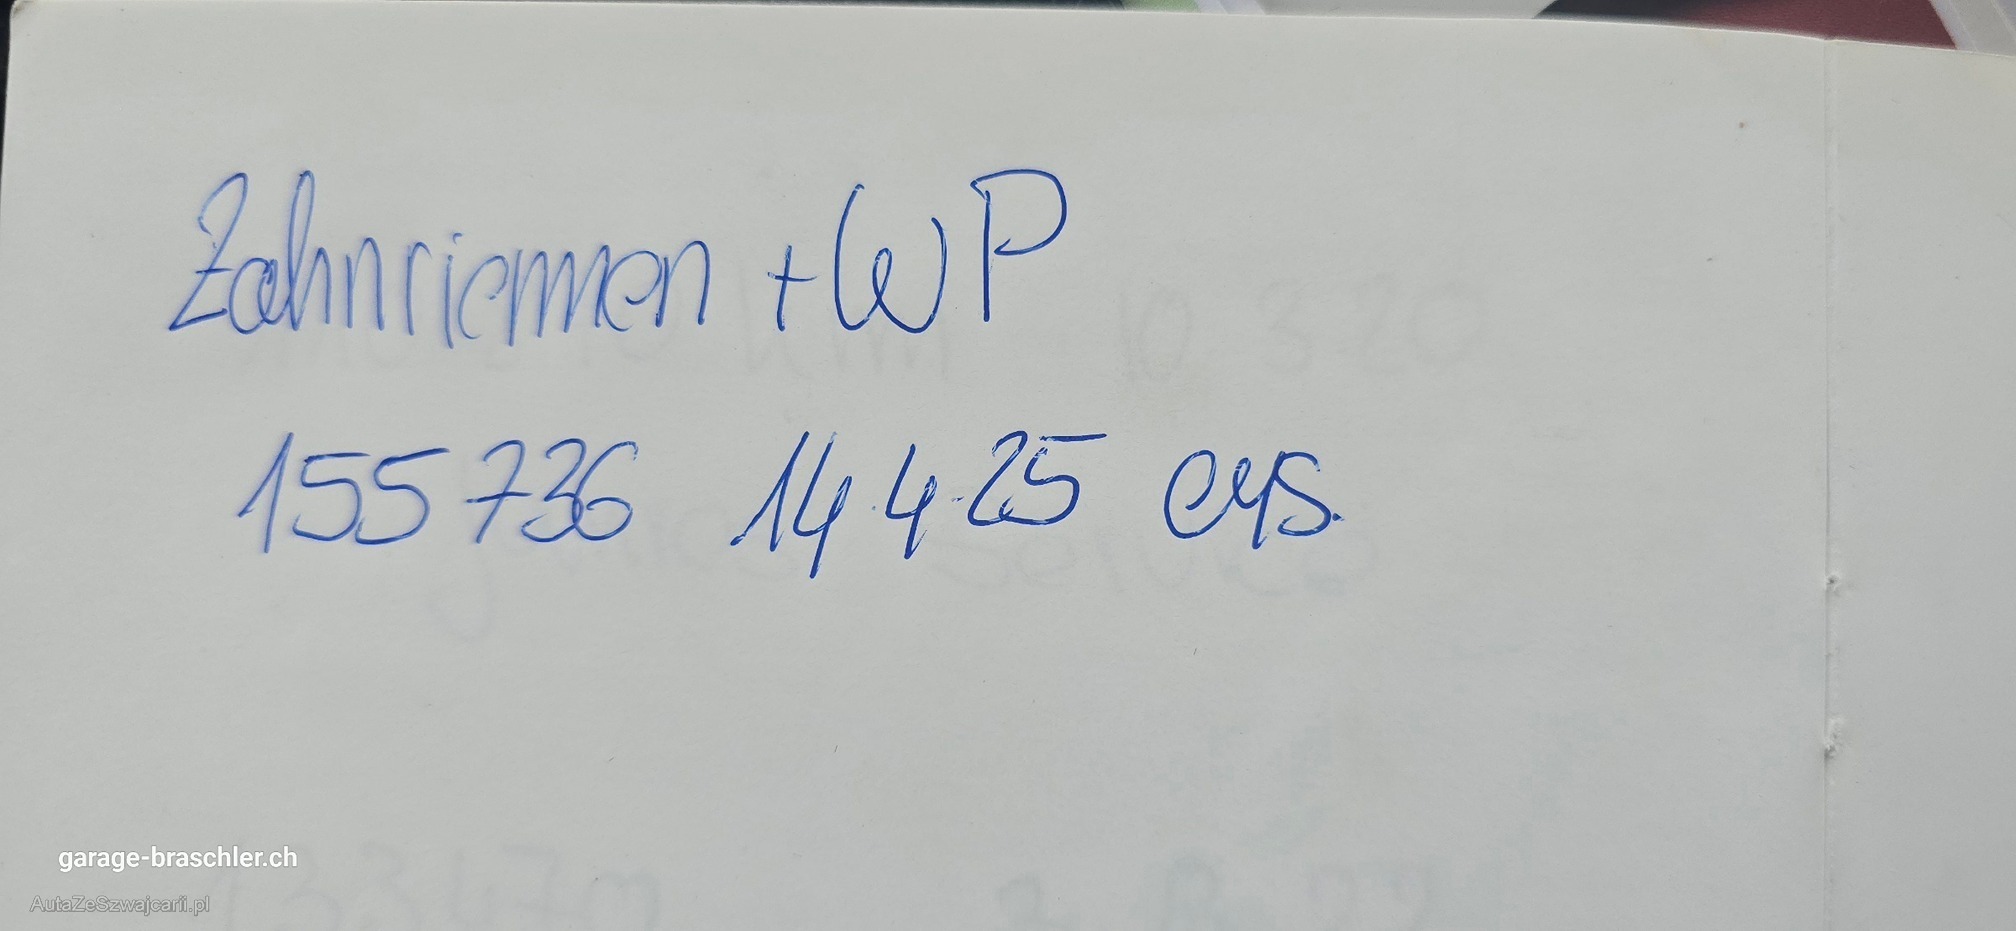 Zahnriemen + WP
155736 14.4.25 eys.
garage-braschler.ch
AutaZeSzwajcarii.pl